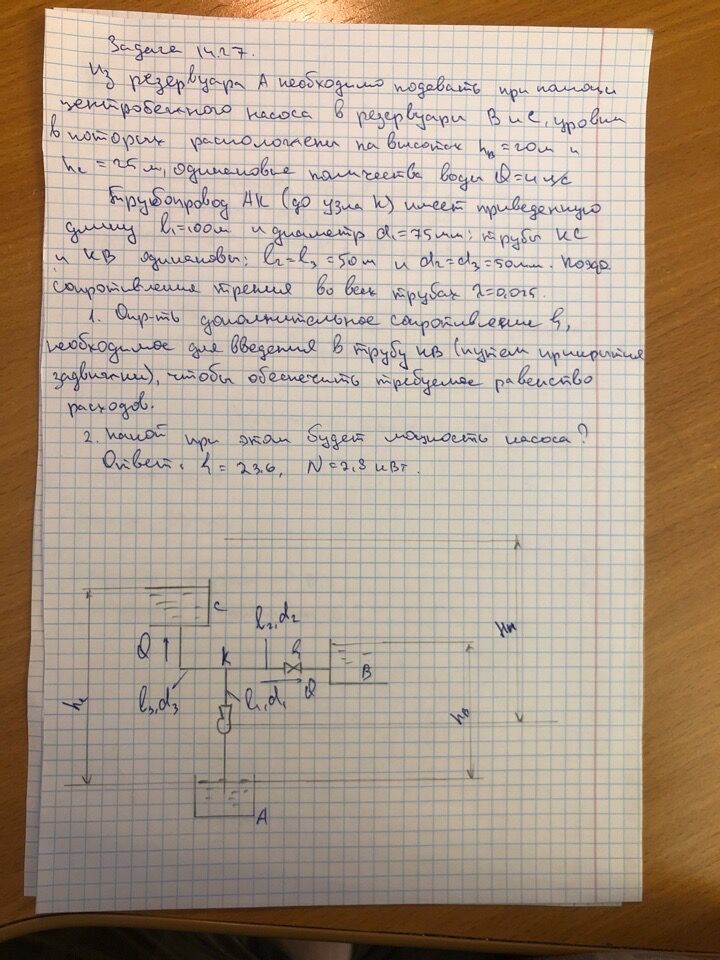 Задача 14.27.
Из резервуара А необходимо подавать при помощи
центробежного насоса в резервуары В и С, уровни
в которых расположены на высотах hв = 20м и
hс = 25м, одинаковые количества воды Q = 4 л/с
Трубопровод АК (до узла К) имеет приведенную
длину l1=100м и диаметр d1=75мм; трубы КС
и КВ одинаковы: l2=l3=50м и d2=d3=50мм. Коэф.
сопротивления трения во всех трубах λ=0,025.
1. Опр-ть дополнительное сопротивление ζ,
необходимое для введения в трубу КВ (путем прикрытия
задвижки), чтобы обеспечить требуемое равенство
расходов.
2. Какой при этом будет мощность насоса?
Ответ. ζ = 23.6,
C
l2,d2
Q
К
ζ
Hн
B
l3,d3
l1,d1
Q
hс
hв
A